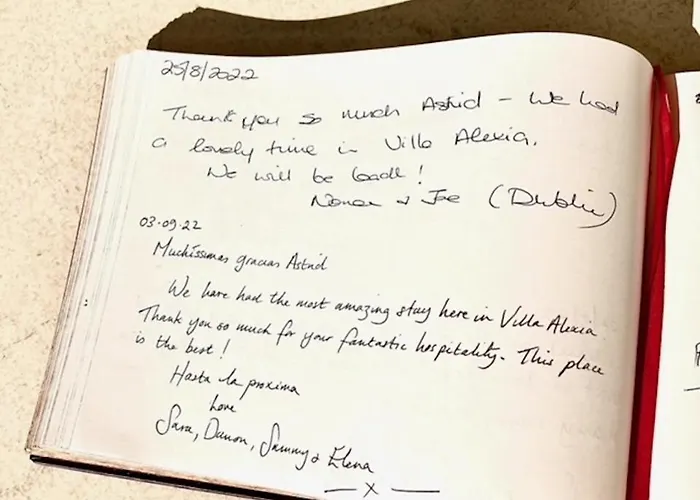 25/8/2022
Thank you so much Astrid - We had
a lovely time in Villa Alexia.
We will be back!
& Joe (Dublin)
03.09.22
Muchissimas gracias Astrid
We have had the most amazing stay here in Villa Alexia
Thank you so much for your fantastic hospitality. This place
is the best!
Hasta la proxima
Love
Sara, Damon, Sammy & Elena
— x —